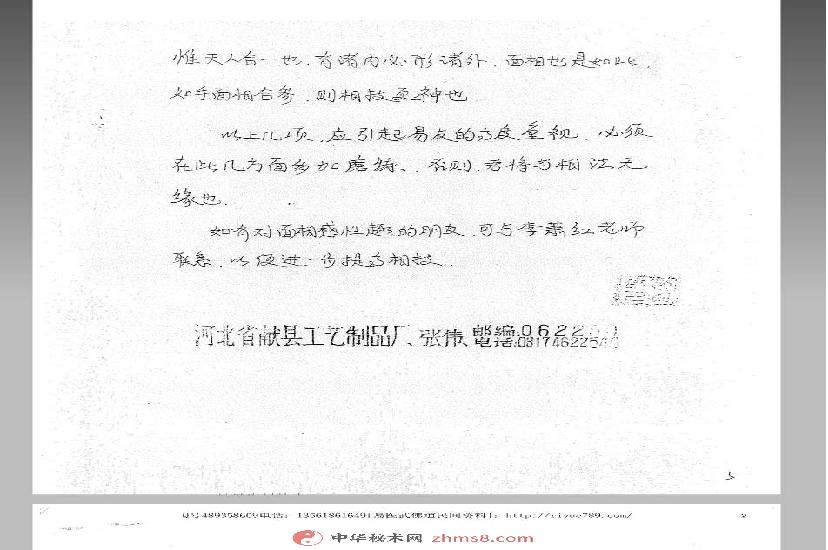 惟天人合一也，有诸内必形诸外，面相也是如此，
如手面相合参，则相技更神也
以上几项，应引起易友的高度重视，必须
在此几方面多加磨练、否则，君将与相法无
缘也．
如有对面相感性趣的朋友，可与李萧红老师
联系，以便进一步提高相技．
河北省献县工艺制品厂、张伟、邮编:0622 電话:031746225
5
QQ489358609电话: 13561861649[易医武佛道民间资料]: http://riyue789.com/ 2
中华秘术网 zhms8.com